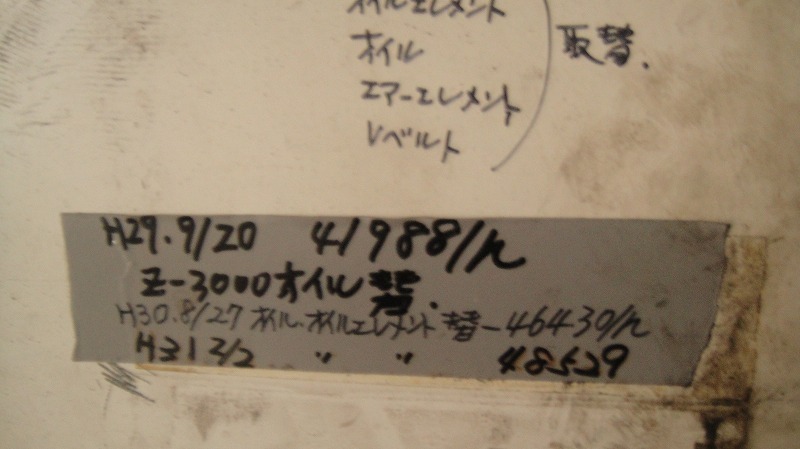 オイルエレメント
オイル 取替.
エアーエレメント
Vベルト
H29.9/20 41988/h
Z-3000オイル替.
H30.8/27 オイル.オイルエレメント替-46430/h
H31 2/2 〃 〃 48529